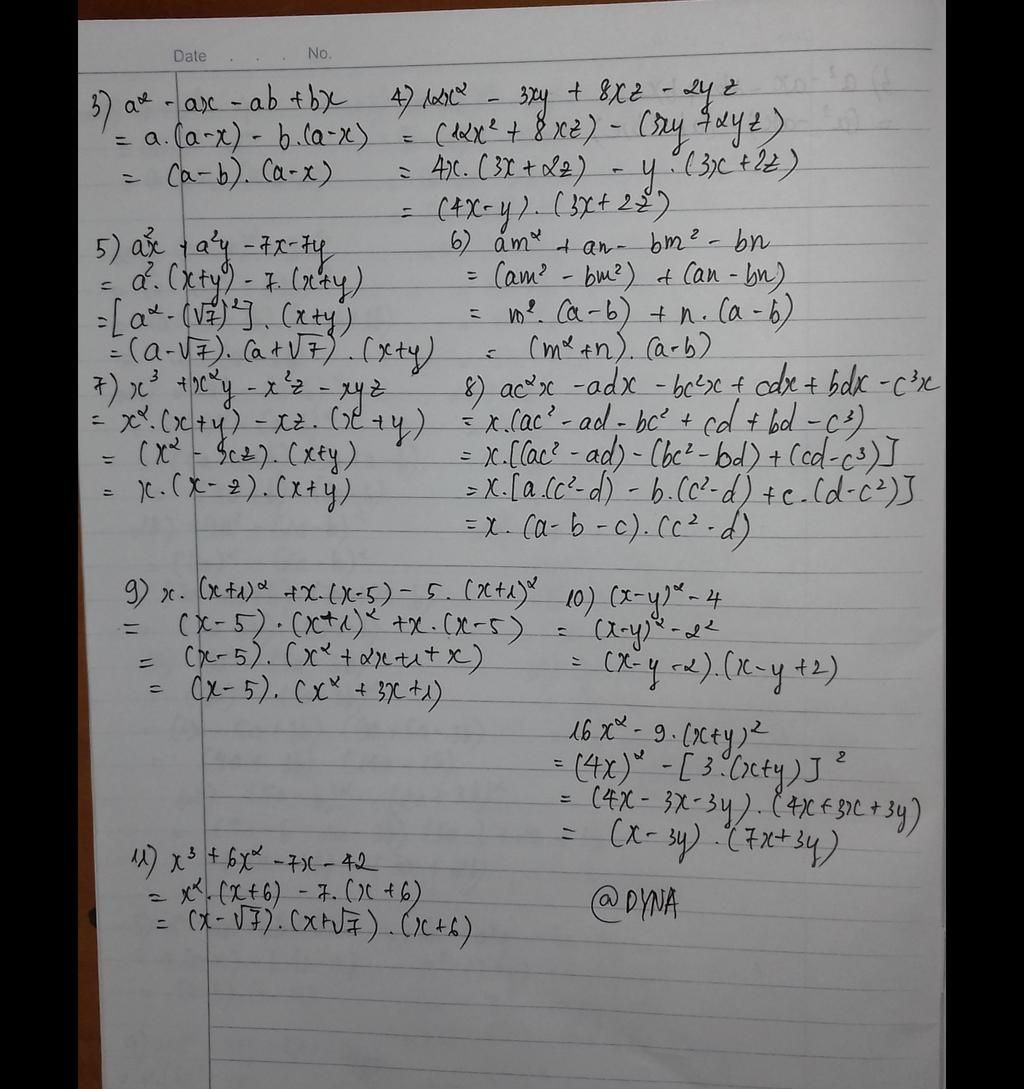 Date . . . No.
3) a² - ax - ab + bx
= a.(a-x) - b.(a-x)
= (a-b).(a-x)
4) 12x² - 3xy + 8xz - 2yz
= (12x² + 8xz) - (3xy + 2yz)
= 4x.(3x+2z) - y.(3x+2z)
= (4x-y).(3x+2z)
5) a²x + a²y - 7x - 7y
= a².(x+y) - 7.(x+y)
= [a² - (√7)²].(x+y)
= (a-√7).(a+√7).(x+y)
6) am² + an - bm² - bn
= (am² - bm²) + (an - bn)
= m².(a-b) + n.(a-b)
= (m²+n).(a-b)
7) x³ + x²y - x²z - xyz
= x².(x+y) - xz.(x+y)
= (x² - xz).(x+y)
= x.(x-z).(x+y)
8) ac²x - adx - bc²x + cdx + bdx - c³x
= x.(ac² - ad - bc² + cd + bd - c³)
= x.[(ac² - ad) - (bc² - bd) + (cd - c³)]
= x.[a.(c²-d) - b.(c²-d) + c.(d-c²)]
= x.(a-b-c).(c²-d)
9) x.(x+1)² + x.(x-5) - 5.(x+1)²
= (x-5).(x+1)² + x.(x-5)
= (x-5).(x² + 2x + 1 + x)
= (x-5).(x² + 3x + 1)
10) (x-y)² - 4
= (x-y)² - 2²
= (x-y-2).(x-y+2)
16x² - 9.(x+y)²
= (4x)² - [3.(x+y)]²
= (4x - 3x - 3y).(4x + 3x + 3y)
= (x-3y).(7x+3y)
11) x³ + 6x² - 7x - 42
= x².(x+6) - 7.(x+6)
= (x-√7).(x+√7).(x+6)
@DYNA